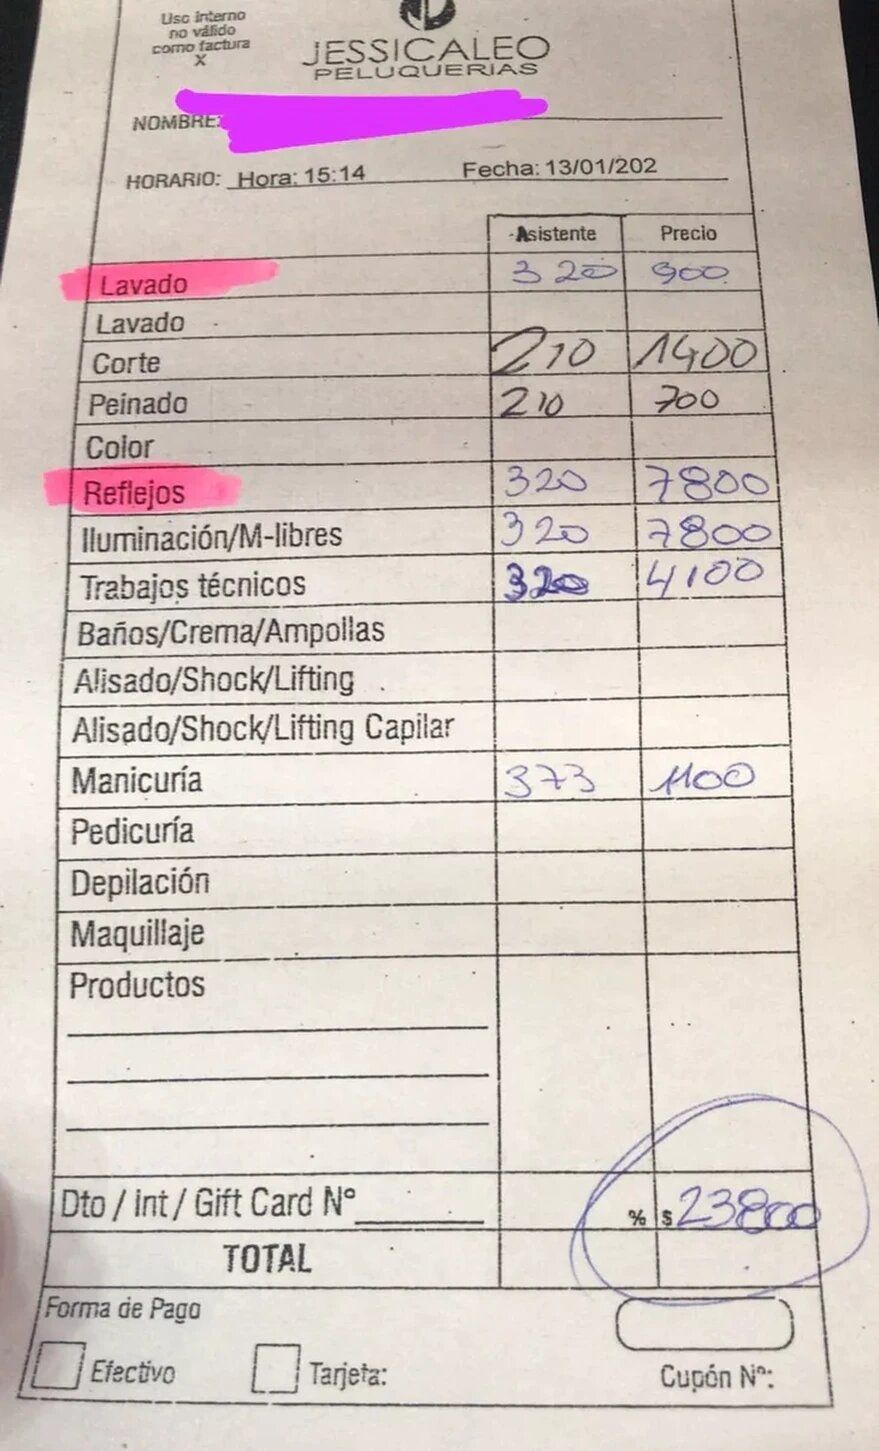 Uso interno
no válido
como factura
X
JESSICALEO
PELUQUERIAS
NOMBRE:
HORARIO: Hora: 15:14 Fecha: 13/01/202
Asistente Precio
Lavado 320 900
Lavado
Corte 210 1400
Peinado 210 700
Color
Reflejos 320 7800
Iluminación/M-libres 320 7800
Trabajos técnicos 320 4100
Baños/Crema/Ampollas
Alisado/Shock/Lifting
Alisado/Shock/Lifting Capilar
Manicuría 373 1100
Pedicuría
Depilación
Maquillaje
Productos
Dto / Int / Gift Card N° % $ 23800
TOTAL
Forma de Pago
Efectivo Tarjeta: Cupón N°: